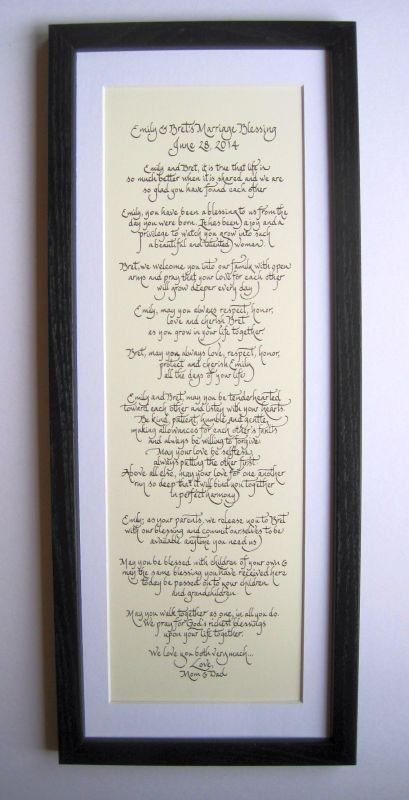 Emily & Bret's Marriage Blessing
June 28, 2014
Emily and Bret, it is true that life is
so much better when it is shared and we are
so glad you have found each other
Emily, you have been a blessing to us from the
day you were born. It has been a joy and a
privilege to watch you grow into such
a beautiful and talented woman.
Bret, we welcome you into our family with open
arms and pray that your love for each other
will grow deeper every day
Emily, may you always respect, honor,
love and cherish Bret
as you grow in your life together
Bret, may you always love, respect, honor,
protect and cherish Emily
all the days of your life
Emily and Bret, may you be tenderhearted
toward each other and listen with your hearts.
Be kind, patient, humble and gentle,
making allowances for each other's faults
and always be willing to forgive.
May your love be selfless,
always putting the other first
Above all else, may your love for one another
run so deep that it will bind you together
in perfect harmony
Emily, as your parents, we release you to Bret
with our blessing and commit ourselves to be
available anytime you need us
May you be blessed with children of your own &
may the same blessing you have received here
today be passed on to your children
and grandchildren
May you walk together as one, in all you do.
We pray for God's richest blessings
upon your life together.
We love you both very much...
Love,
Mom & Dad